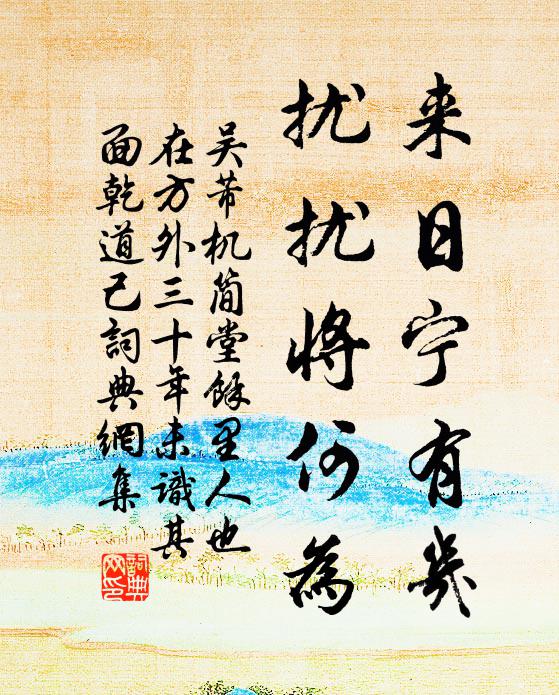 来日宁有几
扰扰将何為
吴芾机简堂馀里人也
在方外三十年未識其
面乾道己詞典網集
詞典
网印